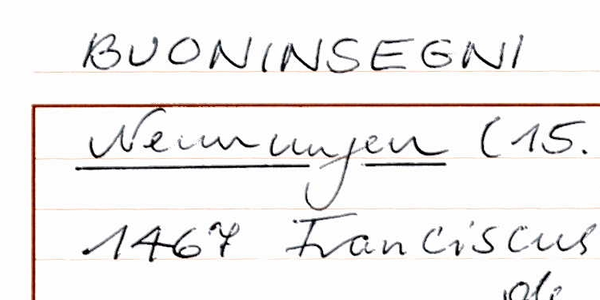 BUONINSEGNI
Nennungen (15.
1467 Franciscus
de